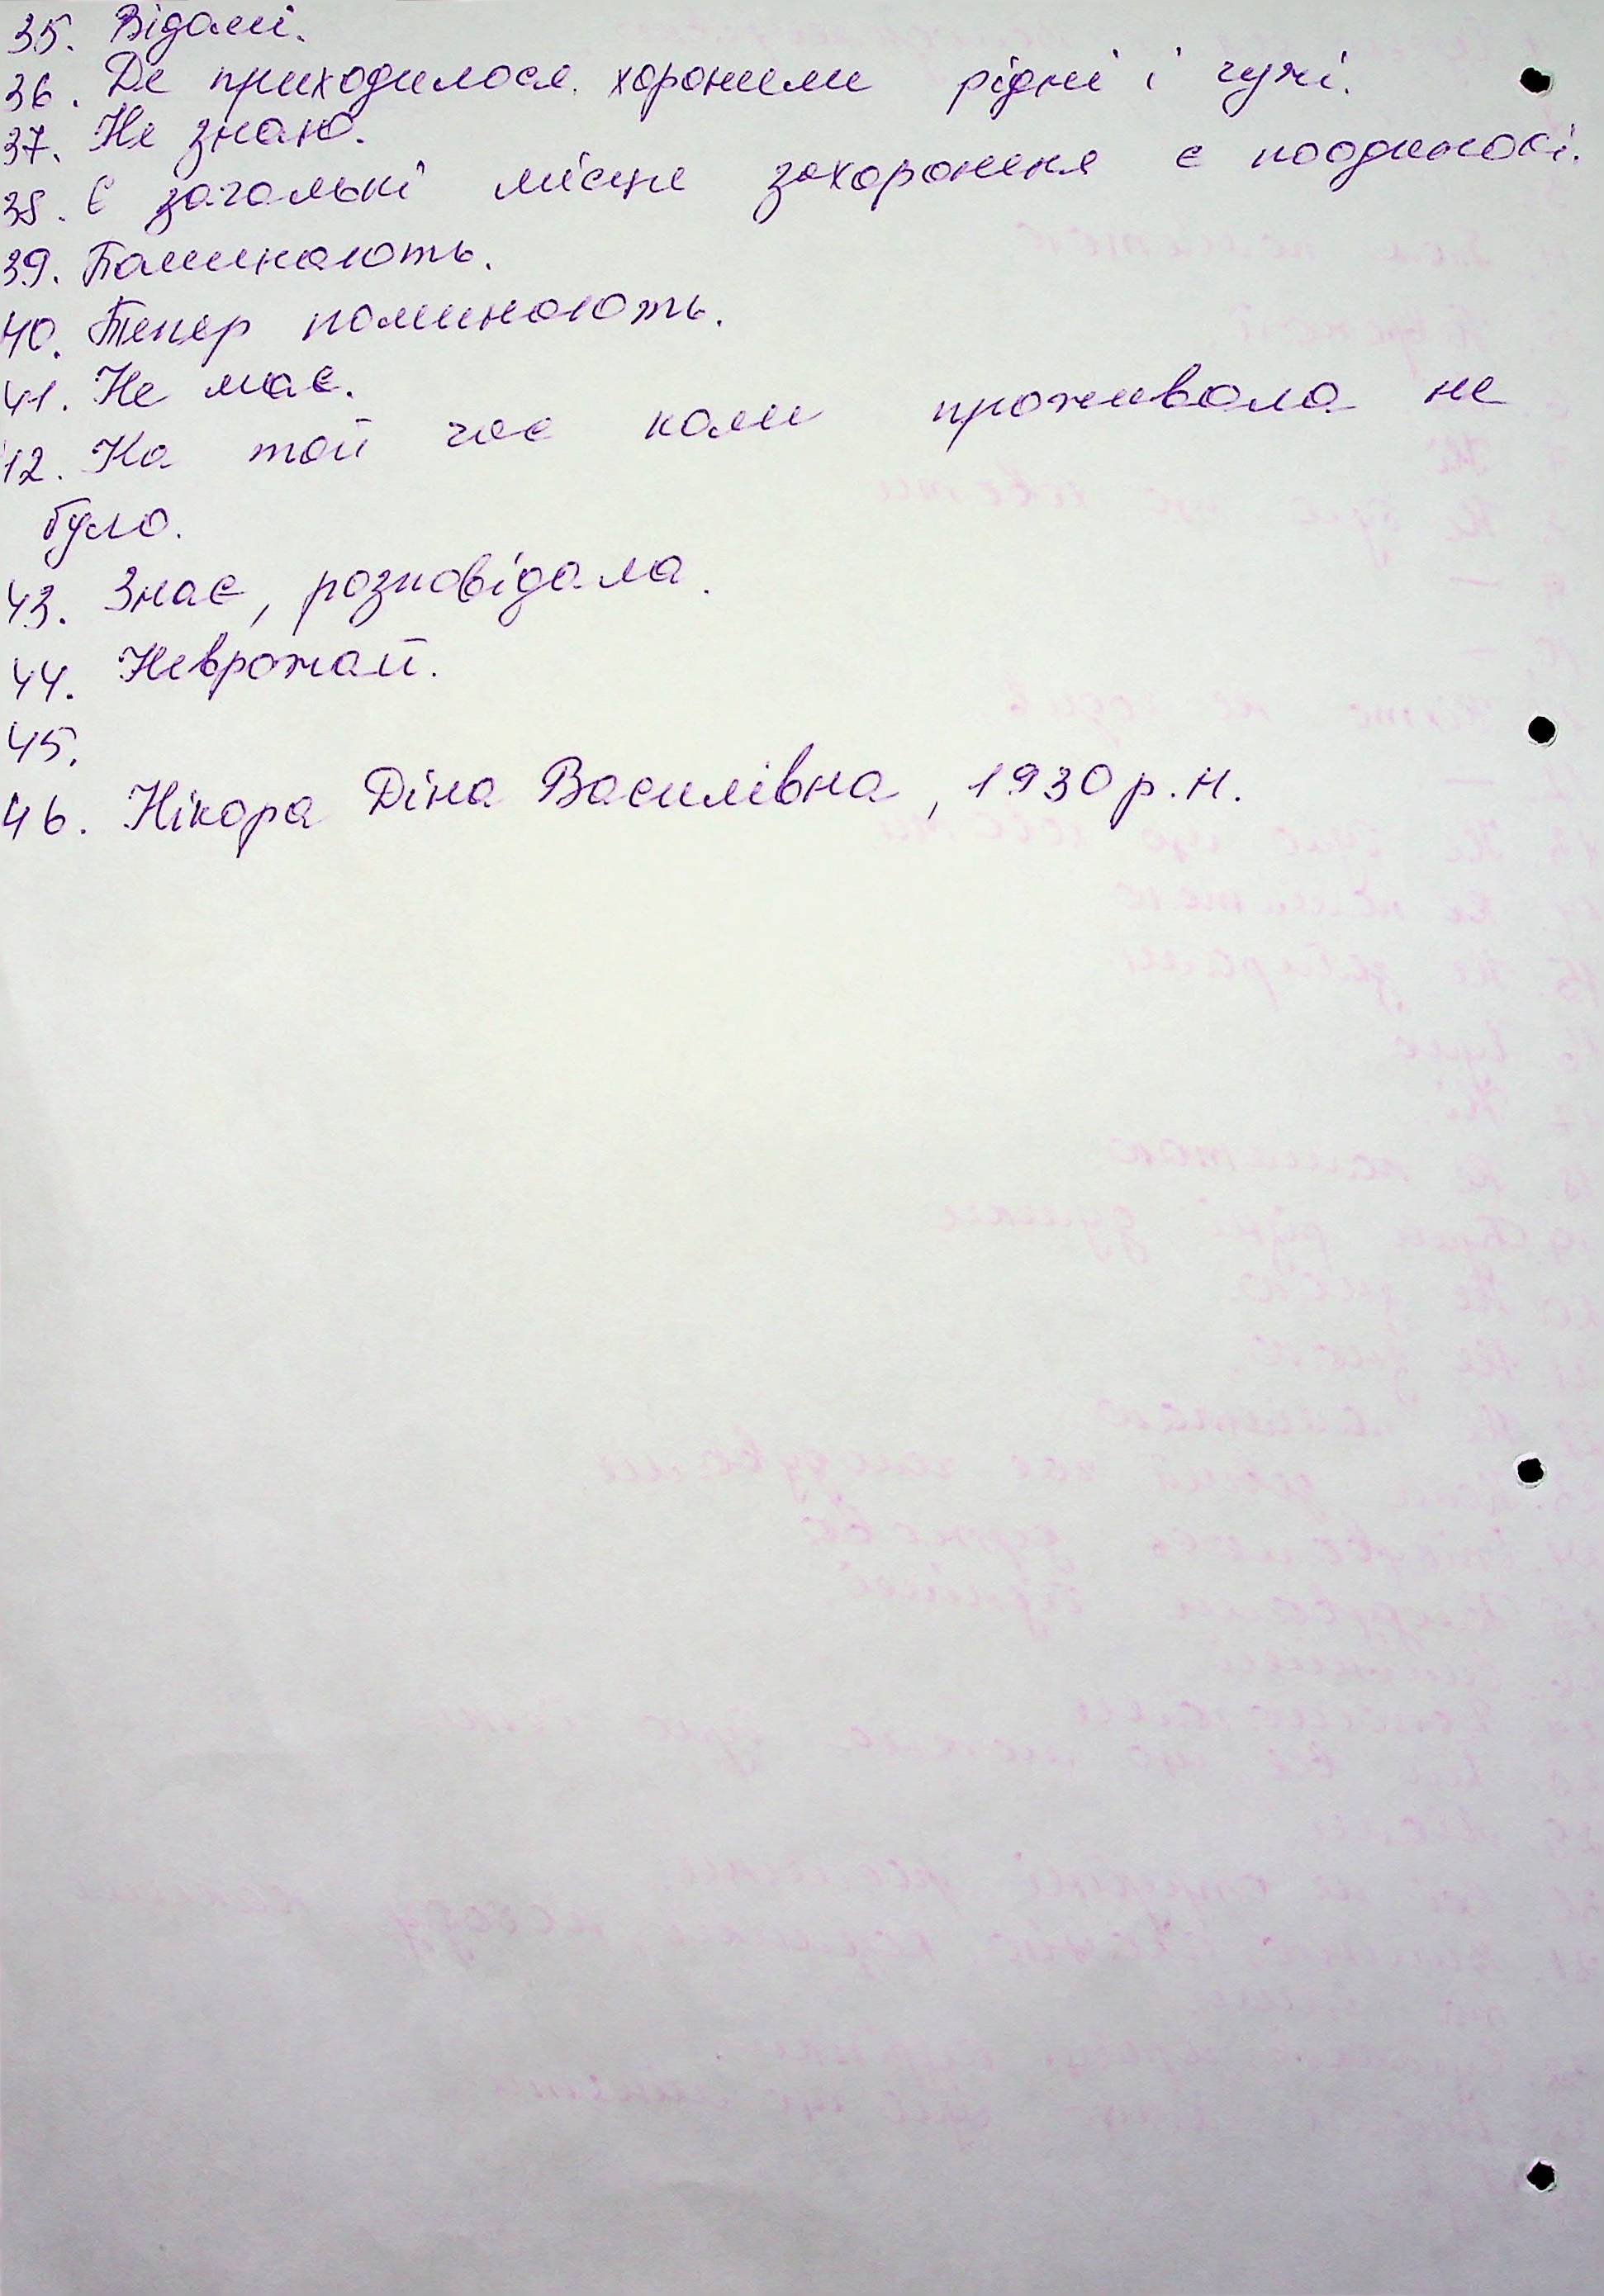 35. Відомі.
36. Де приходилося хоронили рідні і чужі.
37. Не знаю.
38. Є загальні місця захоронення є поодинокі.
39. Поминають.
40. Тепер поминають.
41. Не має.
42. На той час коли проживала не
було.
43. Знає, розповідала.
44. Неврожай.
45.
46. Нікора Діна Василівна, 1930 р.н.